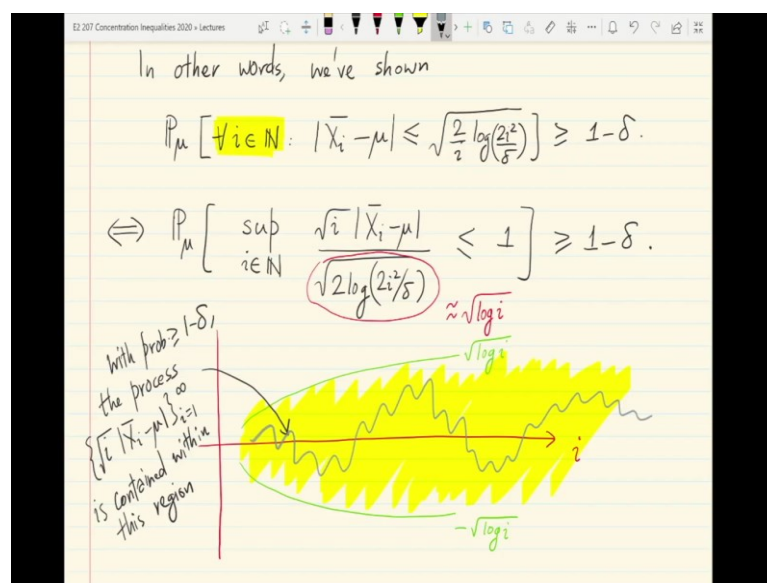 E2 207 Concentration Inequalities 2020 » Lectures
In other words, we've shown
ℙ_μ [∀ i ∈ ℕ: |X̄_i − μ| ≤ √(2/i log(2i²/δ))] ≥ 1−δ.
⇔ ℙ_μ [ sup_{i∈ℕ} √i |X̄_i−μ| / √(2log(2i²/δ)) ≤ 1 ] ≥ 1−δ.
≈ √log i
with prob ≥ 1−δ,
the process
{√i |X̄_i−μ|}_{i=1}^∞
is contained within
this region
√log i
i
−√log i